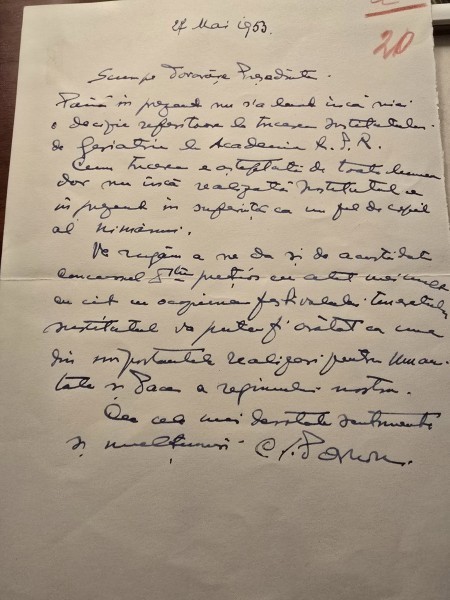 20
27 Mai 1953.
Scumpe Tovarăşe Preşedinte.
Până în prezent nu s'a luat încă nici
o decizie referitoare la trecerea Institutului
de Geriatrie la Academia R.P.R.
Cum trecerea e aşteptată de toată lumea
dar nu încă realizată Institutul e
în prezent în suferinţă ca un fel de copil
al nimănui.
Vă rugăm a ne da şi de astădată
concursul Dstră preţios cu atât mai mult
cu cât cu ocaziunea festivalului tineretului
institutul va putea fi arătat ca una
din importantele realizări pentru uman-
tate şi Pace a regimului nostru.
Cu cele mai devotate sentimente
şi mulţumiri C.I. Parhon.